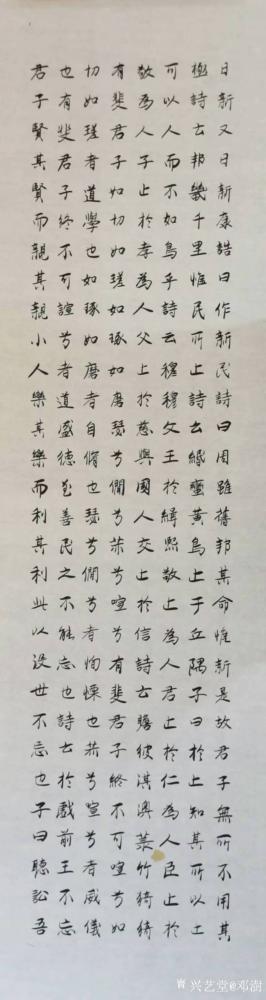 日新又日新康誥曰作新民詩曰周雖舊邦其命惟新是故君子無所不用其
極詩云邦畿千里惟民所止詩云緡蠻黃鳥止于丘隅子曰於止知其所以止
可以人而不如鳥乎詩云穆穆文王於緝熙敬止為人君止於仁為人臣止於
敬為人子止於孝為人父止於慈與國人交止於信詩云瞻彼淇澳菉竹猗猗
有斐君子如切如磋如琢如磨瑟兮僩兮赫兮喧兮有斐君子終不可喧兮如
切如磋者道學也如琢如磨者自脩也瑟兮僩兮者恂慄也赫兮喧兮者威儀
也有斐君子終不可諠兮者道盛德至善民之不能忘也詩云於戲前王不忘
君子賢其賢而親其親小人樂其樂而利其利此以沒世不忘也子曰聽訟吾
兴艺堂@邓澍